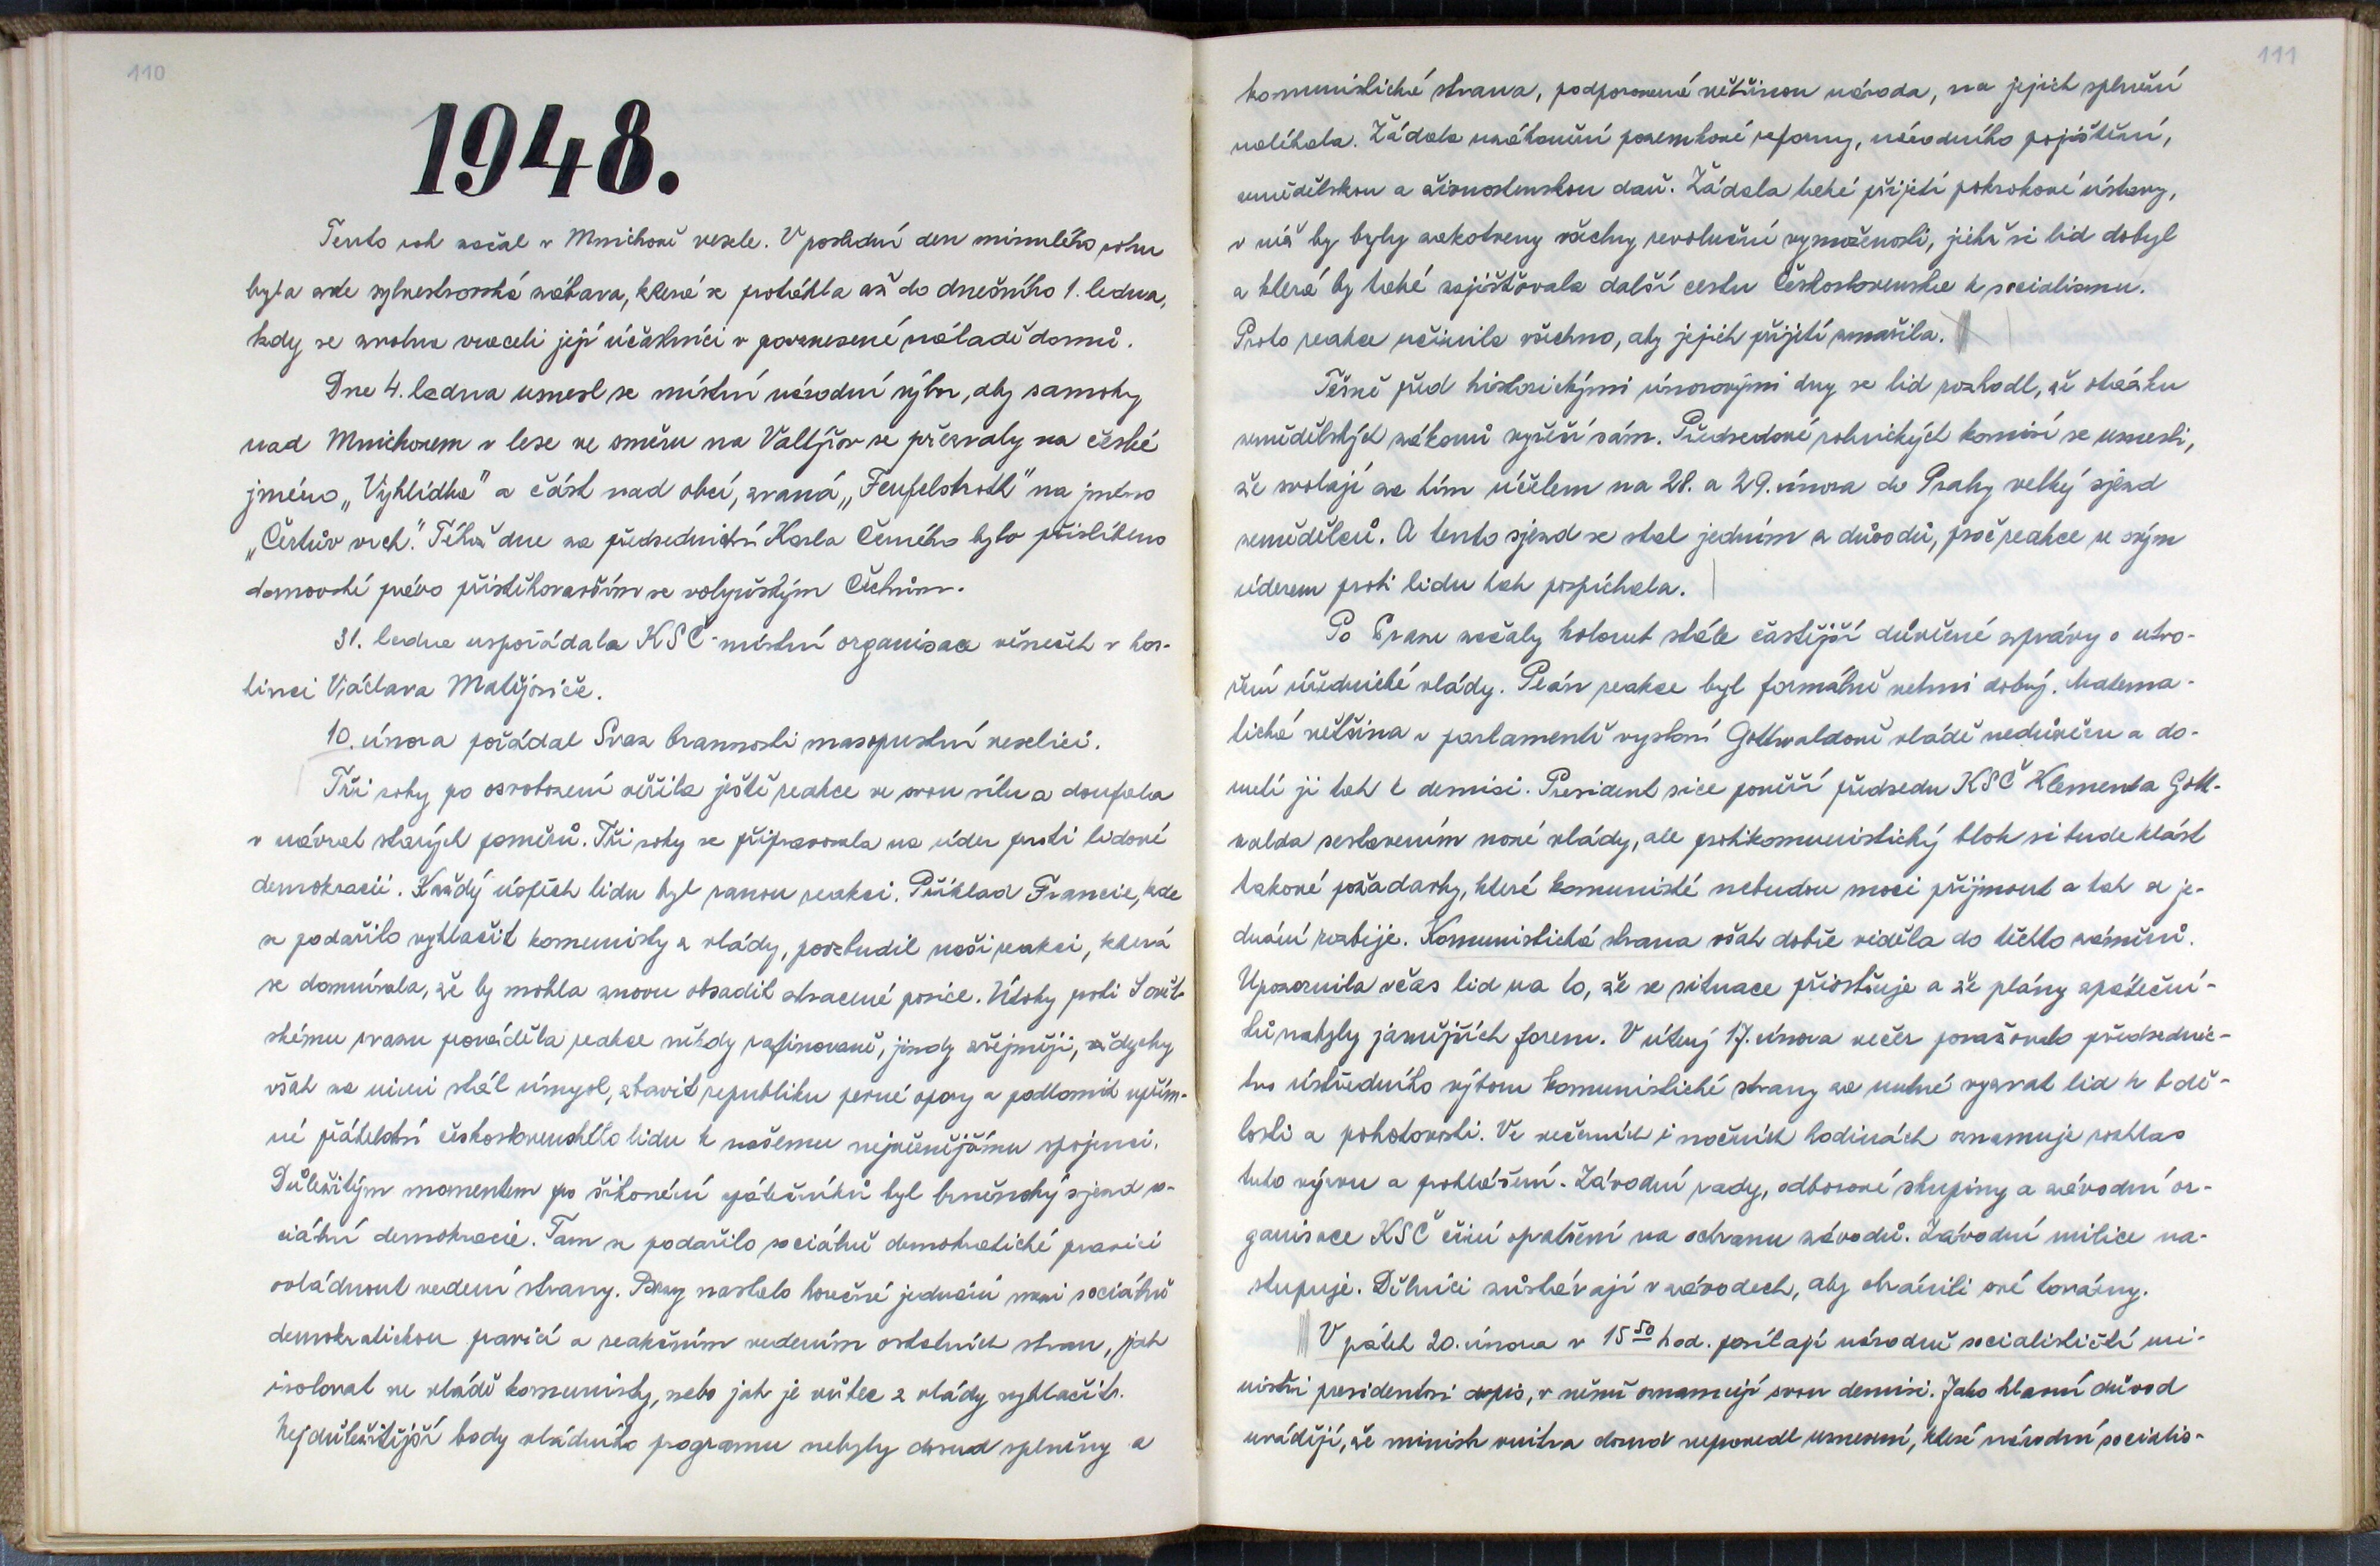 110
1948.
Tento rok začal v Mnichově vesele. V poslední den minulého roku
byla zde sylvestrovská zábava, která se protáhla až do dnešního 1. ledna,
kdy se zvolna vraceli její účastníci v povznesené náladě domů.
Dne 4. ledna usnesl se místní národní výbor, aby samoty
nad Mnichovem v lese ve směru na Valtířov se přezvaly na české
jméno „Vyhlídka" a část nad obcí, zvaná „Teufelskoth" na jméno
„Čertův vrch". Téhož dne za předsednictví Karla Černého bylo přislíbeno
domovské právo přistěhovavším se volyňským Čechům.
31. ledna uspořádala KSČ - místní organisace věneček v hos-
tinci Václava Matějoviče.
10. února pořádal Svaz brannosti masopustní veselici.
Tři roky po osvobození věřila ještě reakce ve svou sílu a doufala
v návrat starých poměrů. Tři roky se připravovala na úder proti lidové
demokracii. Každý úspěch lidu byl ranou reakci. Příklad Francie, kde
se podařilo vytlačit komunisty z vlády, povzbudil naši reakci, která
se domnívala, že by mohla znovu obsadit ztracené posice. Útoky proti Sovět-
skému svazu prováděla reakce někdy rafinovaně, jindy zřejměji, vždycky
však za nimi stál úmysl, zbavit republiku pevné opory a podlomit upřím-
né přátelství československého lidu k našemu nejvěrnějšímu spojenci.
Důležitým momentem po šikování zpátečníků byl brněnský sjezd so-
ciální demokracie. Tam se podařilo sociálně demokratické pravici
ovládnout vedení strany. Brzy nastalo horečné jednání mezi sociálně
demokratickou pravicí a reakčním vedením ostatních stran, jak
isolovat ve vládě komunisty, nebo jak je vůbec z vlády vytlačit.
Nejdůležitější body vládního programu nebyly dosud splněny a
111
komunistická strana, podporovaná většinou národa, na jejich splnění
naléhala. Žádala uzákonění pozemkové reformy, národního pojištění,
zemědělskou a živnostenskou daň. Žádala také přijetí pokrokové ústavy,
v níž by byly zakotveny všechny revoluční vymoženosti, jichž si lid dobyl
a která by také zajišťovala další cestu Československa k socialismu.
Proto reakce učinila všechno, aby jejich přijetí zmařila.
Těsně před historickými únorovými dny se lid rozhodl, že otázku
zemědělských zákonů vyřeší sám. Předsedové rolnických komisí se usnesli,
že svolají za tím účelem na 28. a 29. února do Prahy velký sjezd
zemědělců. A tento sjezd se stal jedním z důvodů, proč reakce se svým
úderem proti lidu tak pospíchala.
Po Praze začaly kolovat stále častější důvěrné zprávy o utvo-
ření úřednické vlády. Plán reakce byl formálně velmi dobrý. Matema-
tická většina v parlamentě vysloví Gottwaldově vládě nedůvěru a do-
nutí ji tak k demisi. President sice pověří předsedu KSČ Klementa Gott-
walda sestavením nové vlády, ale protikomunistický blok si bude klást
takové požadavky, které komunisté nebudou moci přijmout a tak se je-
dnání rozbije. Komunistická strana však dobře viděla do těchto záměrů.
Upozornila včas lid na to, že se situace přiostřuje a že plány zpáteční-
ků nabyly jasnějších forem. V úterý 17. února večer považovalo předsednic-
tvo ústředního výboru komunistické strany za nutné vyzvat lid k bdě-
losti a pohotovosti. Ve večerních i nočních hodinách oznamuje rozhlas
tuto výzvu a prohlášení. Závodní rady, odborové skupiny a závodní or-
ganisace KSČ činí opatření na ochranu závodů. Závodní milice na-
stupuje. Dělníci zůstávají v závodech, aby chránili své továrny.
V pátek 20. února v 15 50 hod. posílají národně socialističtí mi-
nistři presidentovi dopis, v němž oznamují svou demisi. Jako hlavní důvod
uvádějí, že ministr vnitra dosud neprovedl usnesení, které národní socialis-